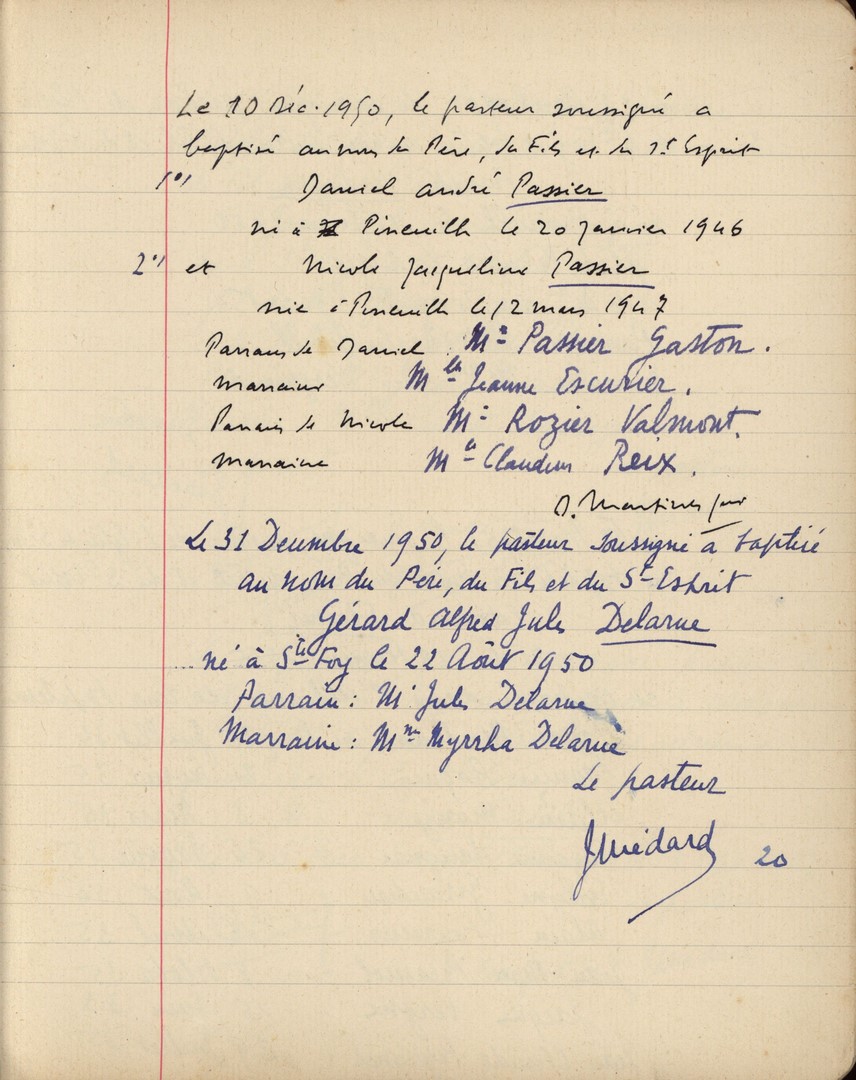 Le 10 Déc. 1950, le pasteur soussigné a
baptisé au nom du Père, du Fils et du St Esprit
1°/ Daniel André Passier
né à Pineuilh le 20 Janvier 1946
2°/ et Nicole Jacqueline Passier
née à Pineuilh le 12 mars 1947
Parrain de Daniel Mr Passier Gaston.
marraine Mlle Jeanne Escurier.
Parrain de Nicole Mr Rozier Valmont.
marraine Mlle Reix.
Le 31 Decembre 1950, le pasteur soussigné a baptisé
au nom du Père, du Fils et du St Esprit
Gérard Alfred Jules Delarue
... né à Ste Foy le 22 Août 1950
Parrain : Mr Jules Delarue
Marraine : Mme Myrrha Delarue
Le pasteur
JMédard 20